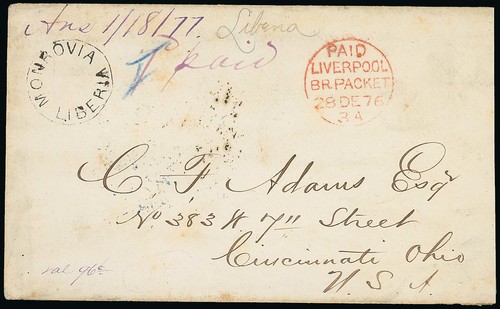 Ans 1/18/77
Liberia
paid
MONROVIA
LIBERIA
PAID
LIVERPOOL
BR.PACKET
28 DE 76
3A
C. F. Adams Esqr
No 383 W 7th Street
Cincinnati Ohio
U.S.A.
val 96c